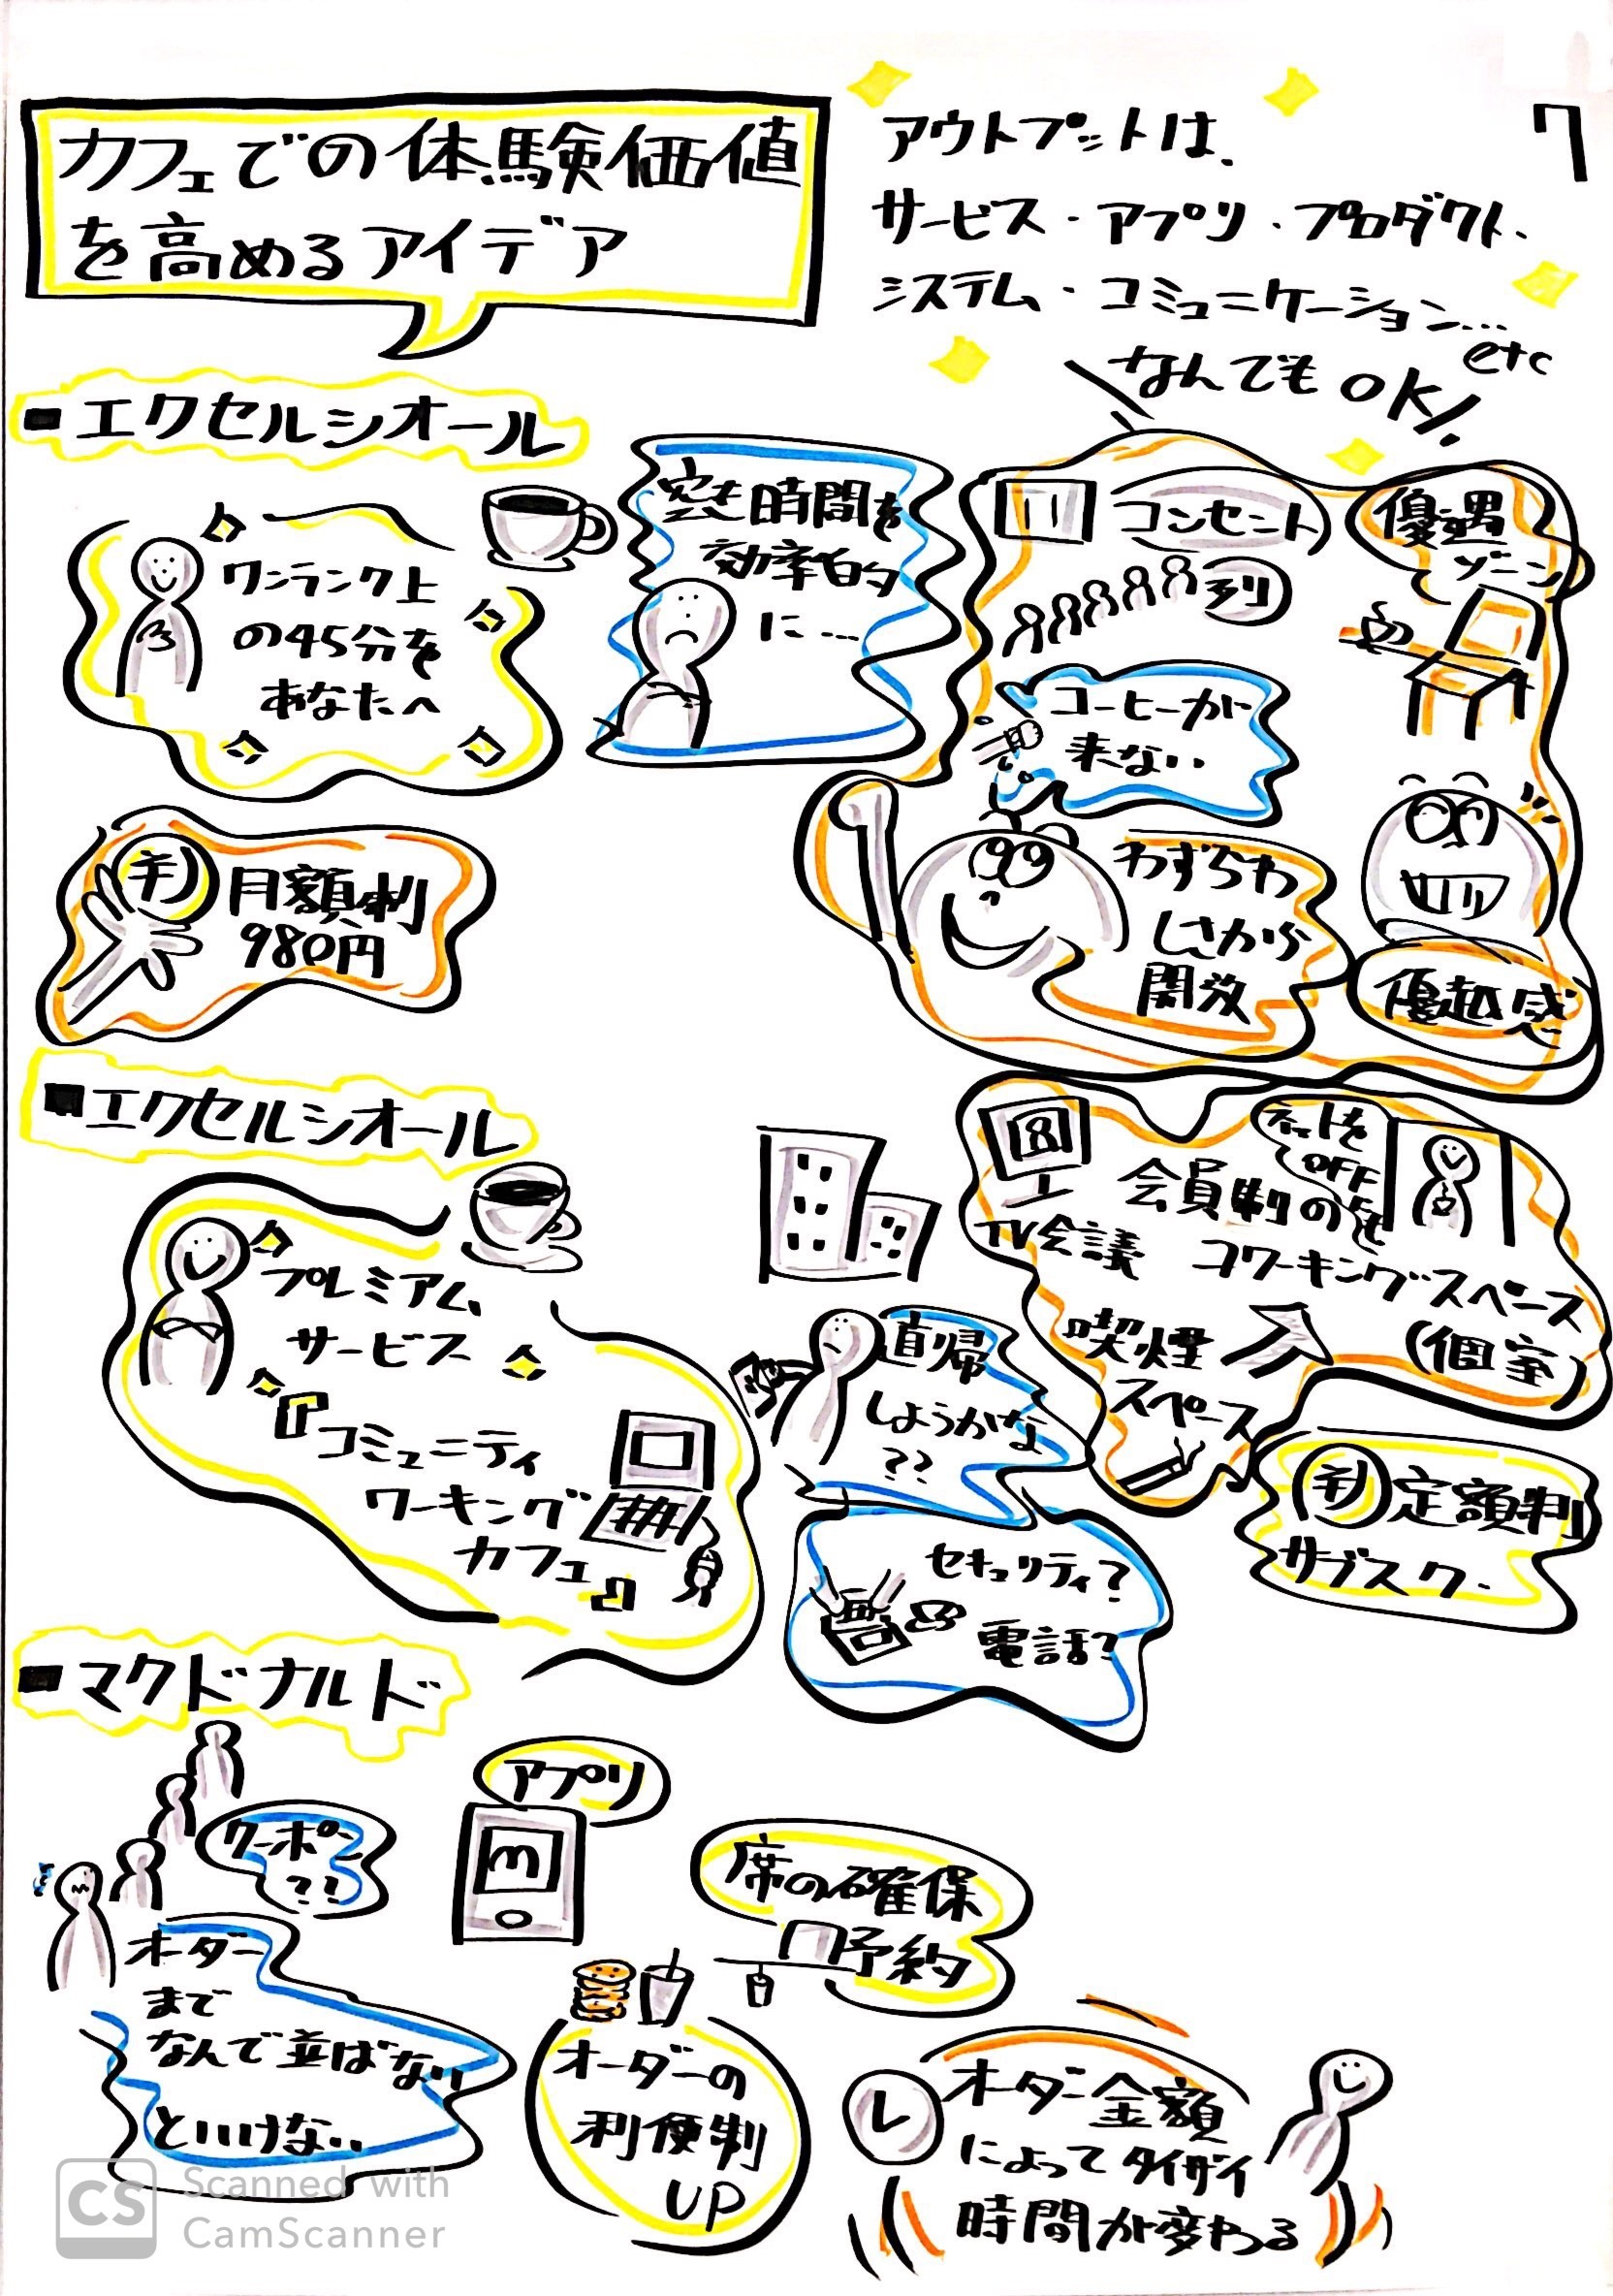 カフェでの体験価値
を高めるアイデア
アウトプットは、
サービス・アプリ・プロダクト・
システム・コミュニケーション…
etc
なんでもOK!
7
■エクセルシオール
ワンランク上
の45分を
あなたへ
空き時間を
効率的
に…
コンセント
列
優遇
ゾーン
コーヒーが
来ない
わずらわ
しさから
開放
優越感
月額制
980円
■エクセルシオール
プレミアム
サービス
『コミュニティ
ワーキング
カフェ』
直帰
しようかな
??
セキュリティ?
電話?
TV会議
ネットを
OFF
会員制の
コワーキングスペース
(個室)
喫煙
スペース
定額制
サブスク
■マクドナルド
クーポン
??
オーダー
まで
なんで並ばない
といけない
アプリ
m
席の確保
予約
オーダーの
利便制
UP
オーダー金額
によってタイザイ
時間が変わる
CS
Scanned with
CamScanner